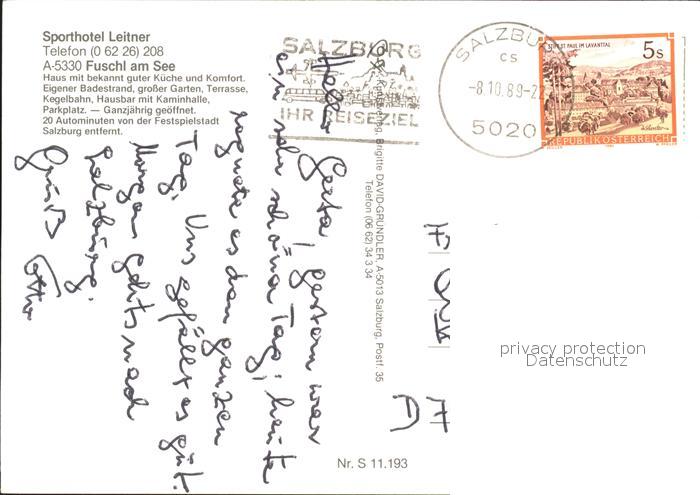 Sporthotel Leitner
Telefon (0 62 26) 208
A-5330 Fuschl am See
Haus mit bekannt guter Küche und Komfort.
Eigener Badestrand, großer Garten, Terrasse,
Kegelbahn, Hausbar mit Kaminhalle,
Parkplatz. — Ganzjährig geöffnet.
20 Autominuten von der Festspielstadt
Salzburg entfernt.
SALZBURG
IHR REISEZIEL
SALZBURG
cs
-8.10.89-22
5020
STIFT ST. PAUL IM LAVANTTAL
5s
REPUBLIK ÖSTERREICH
Brigitte DAVID-GRÜNDLER, A-5013 Salzburg, Postf. 35
Telefon (06 62) 34 3 34
Hallo Gerta, gestern war
ein sehr schöner Tag, heute
regnete es den ganzen
Tag. Uns gefällt es gut.
Morgen gehts nach
Salzburg.
Gruß
Nr. S 11.193
privacy protection
Datenschutz